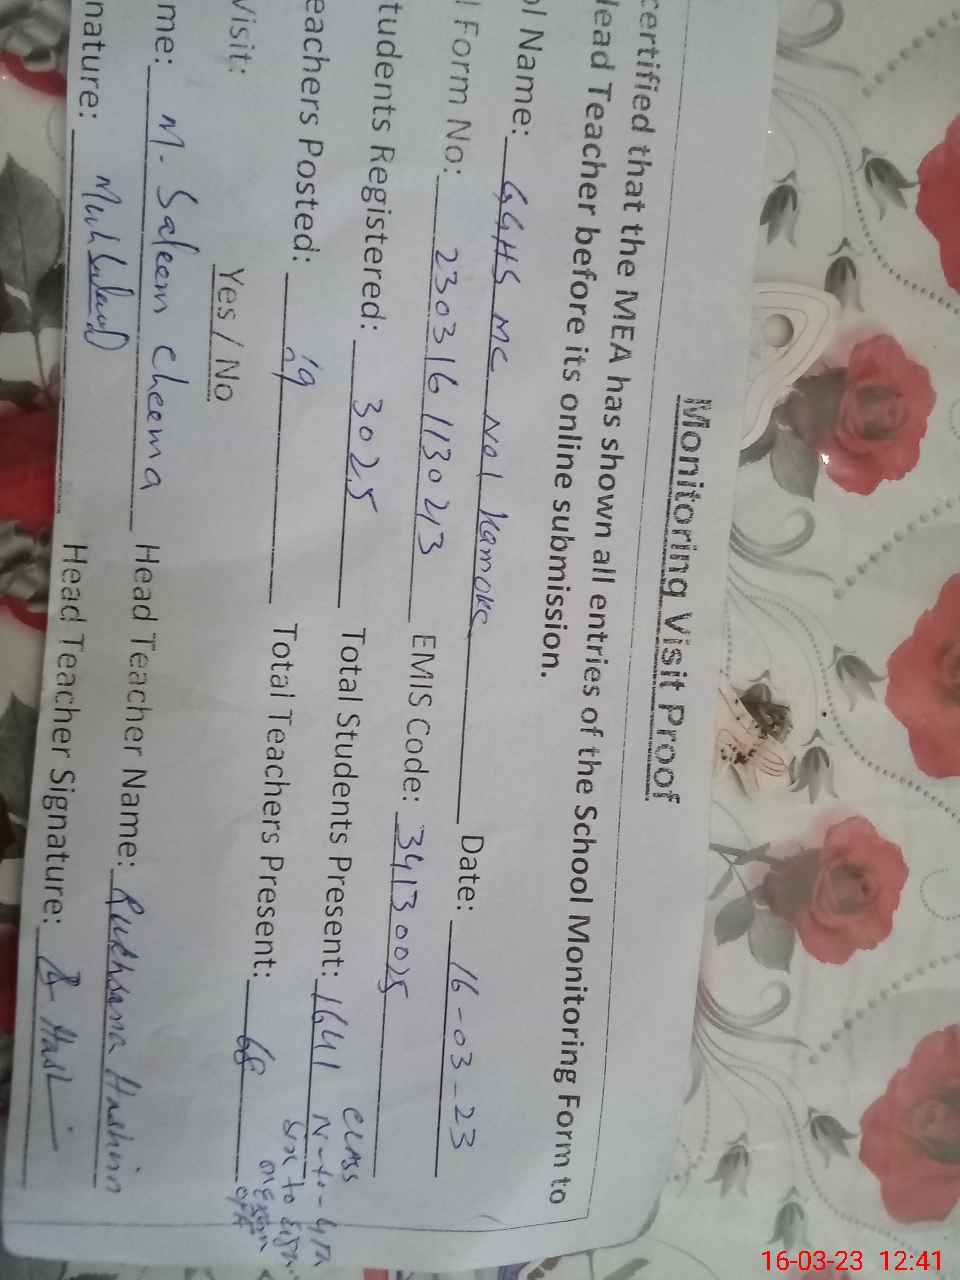 Monitoring Visit Proof
certified that the MEA has shown all entries of the School Monitoring Form to
Head Teacher before its online submission.
ol Name: GGHS MC No1 Kamoke Date: 16-03-23
l Form No: 230316113043 EMIS Code: 34130025
tudents Registered: 3025 Total Students Present: 1641 class N-to-4th
six to
on exam
eachers Posted: Total Teachers Present: 68
Visit: Yes / No
me: M. Saleem Cheema Head Teacher Name: Rukhsana Hashim
nature: Head Teacher Signature:
16-03-23 12:41